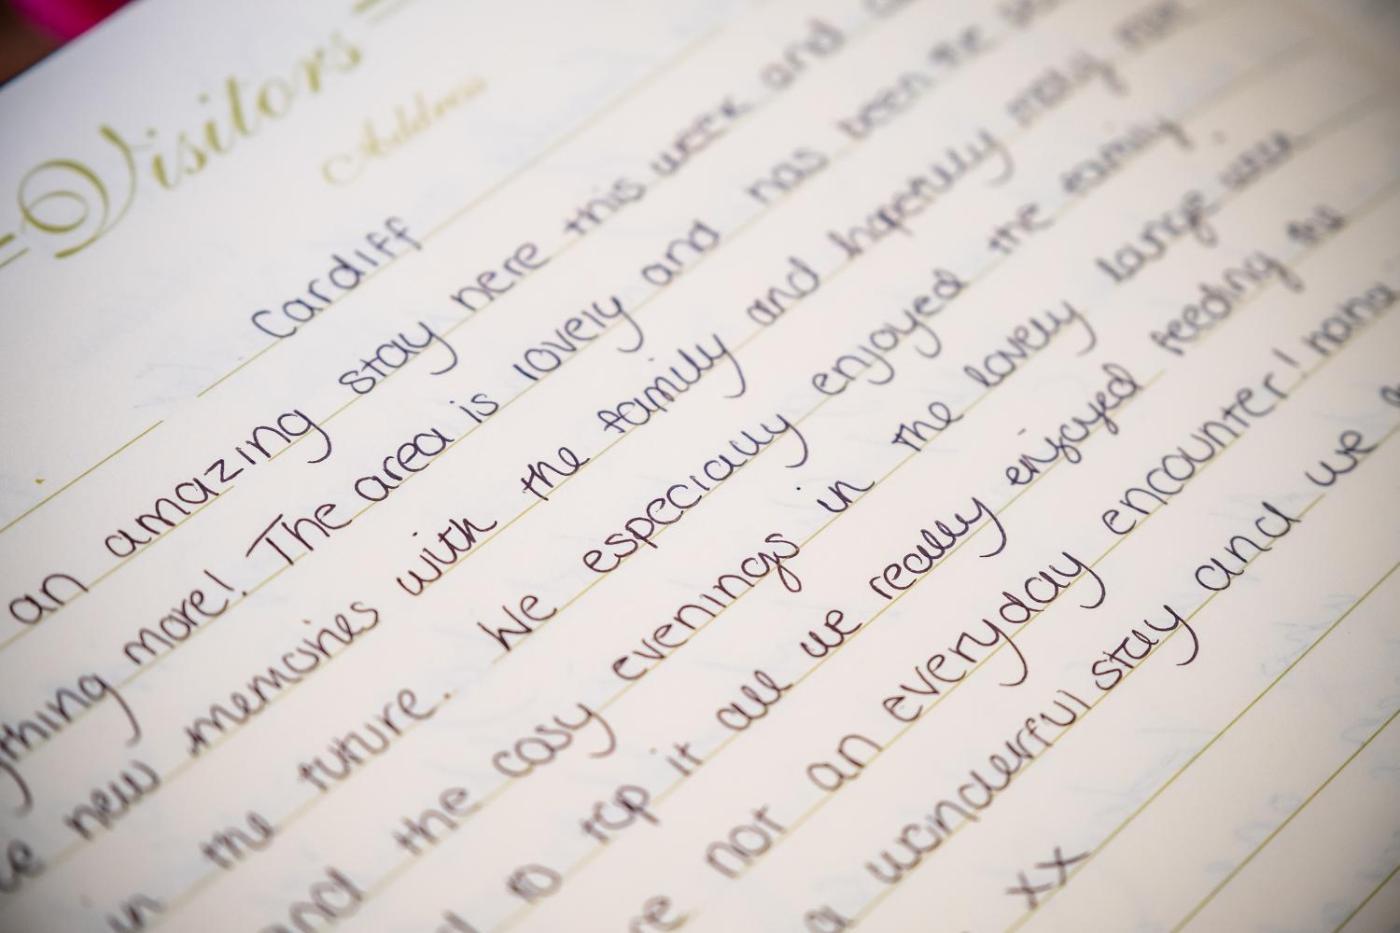 Visitors
Address
Cardiff
an amazing stay here this week and
thing more! The area is lovely and has been the
new memories with the family and hopefully many more
in the future. We especially enjoyed the family
and the cosy evenings in the lovely large
to top it all we really enjoyed feeding the
not an everyday encounter!
a wonderful stay and we
xx